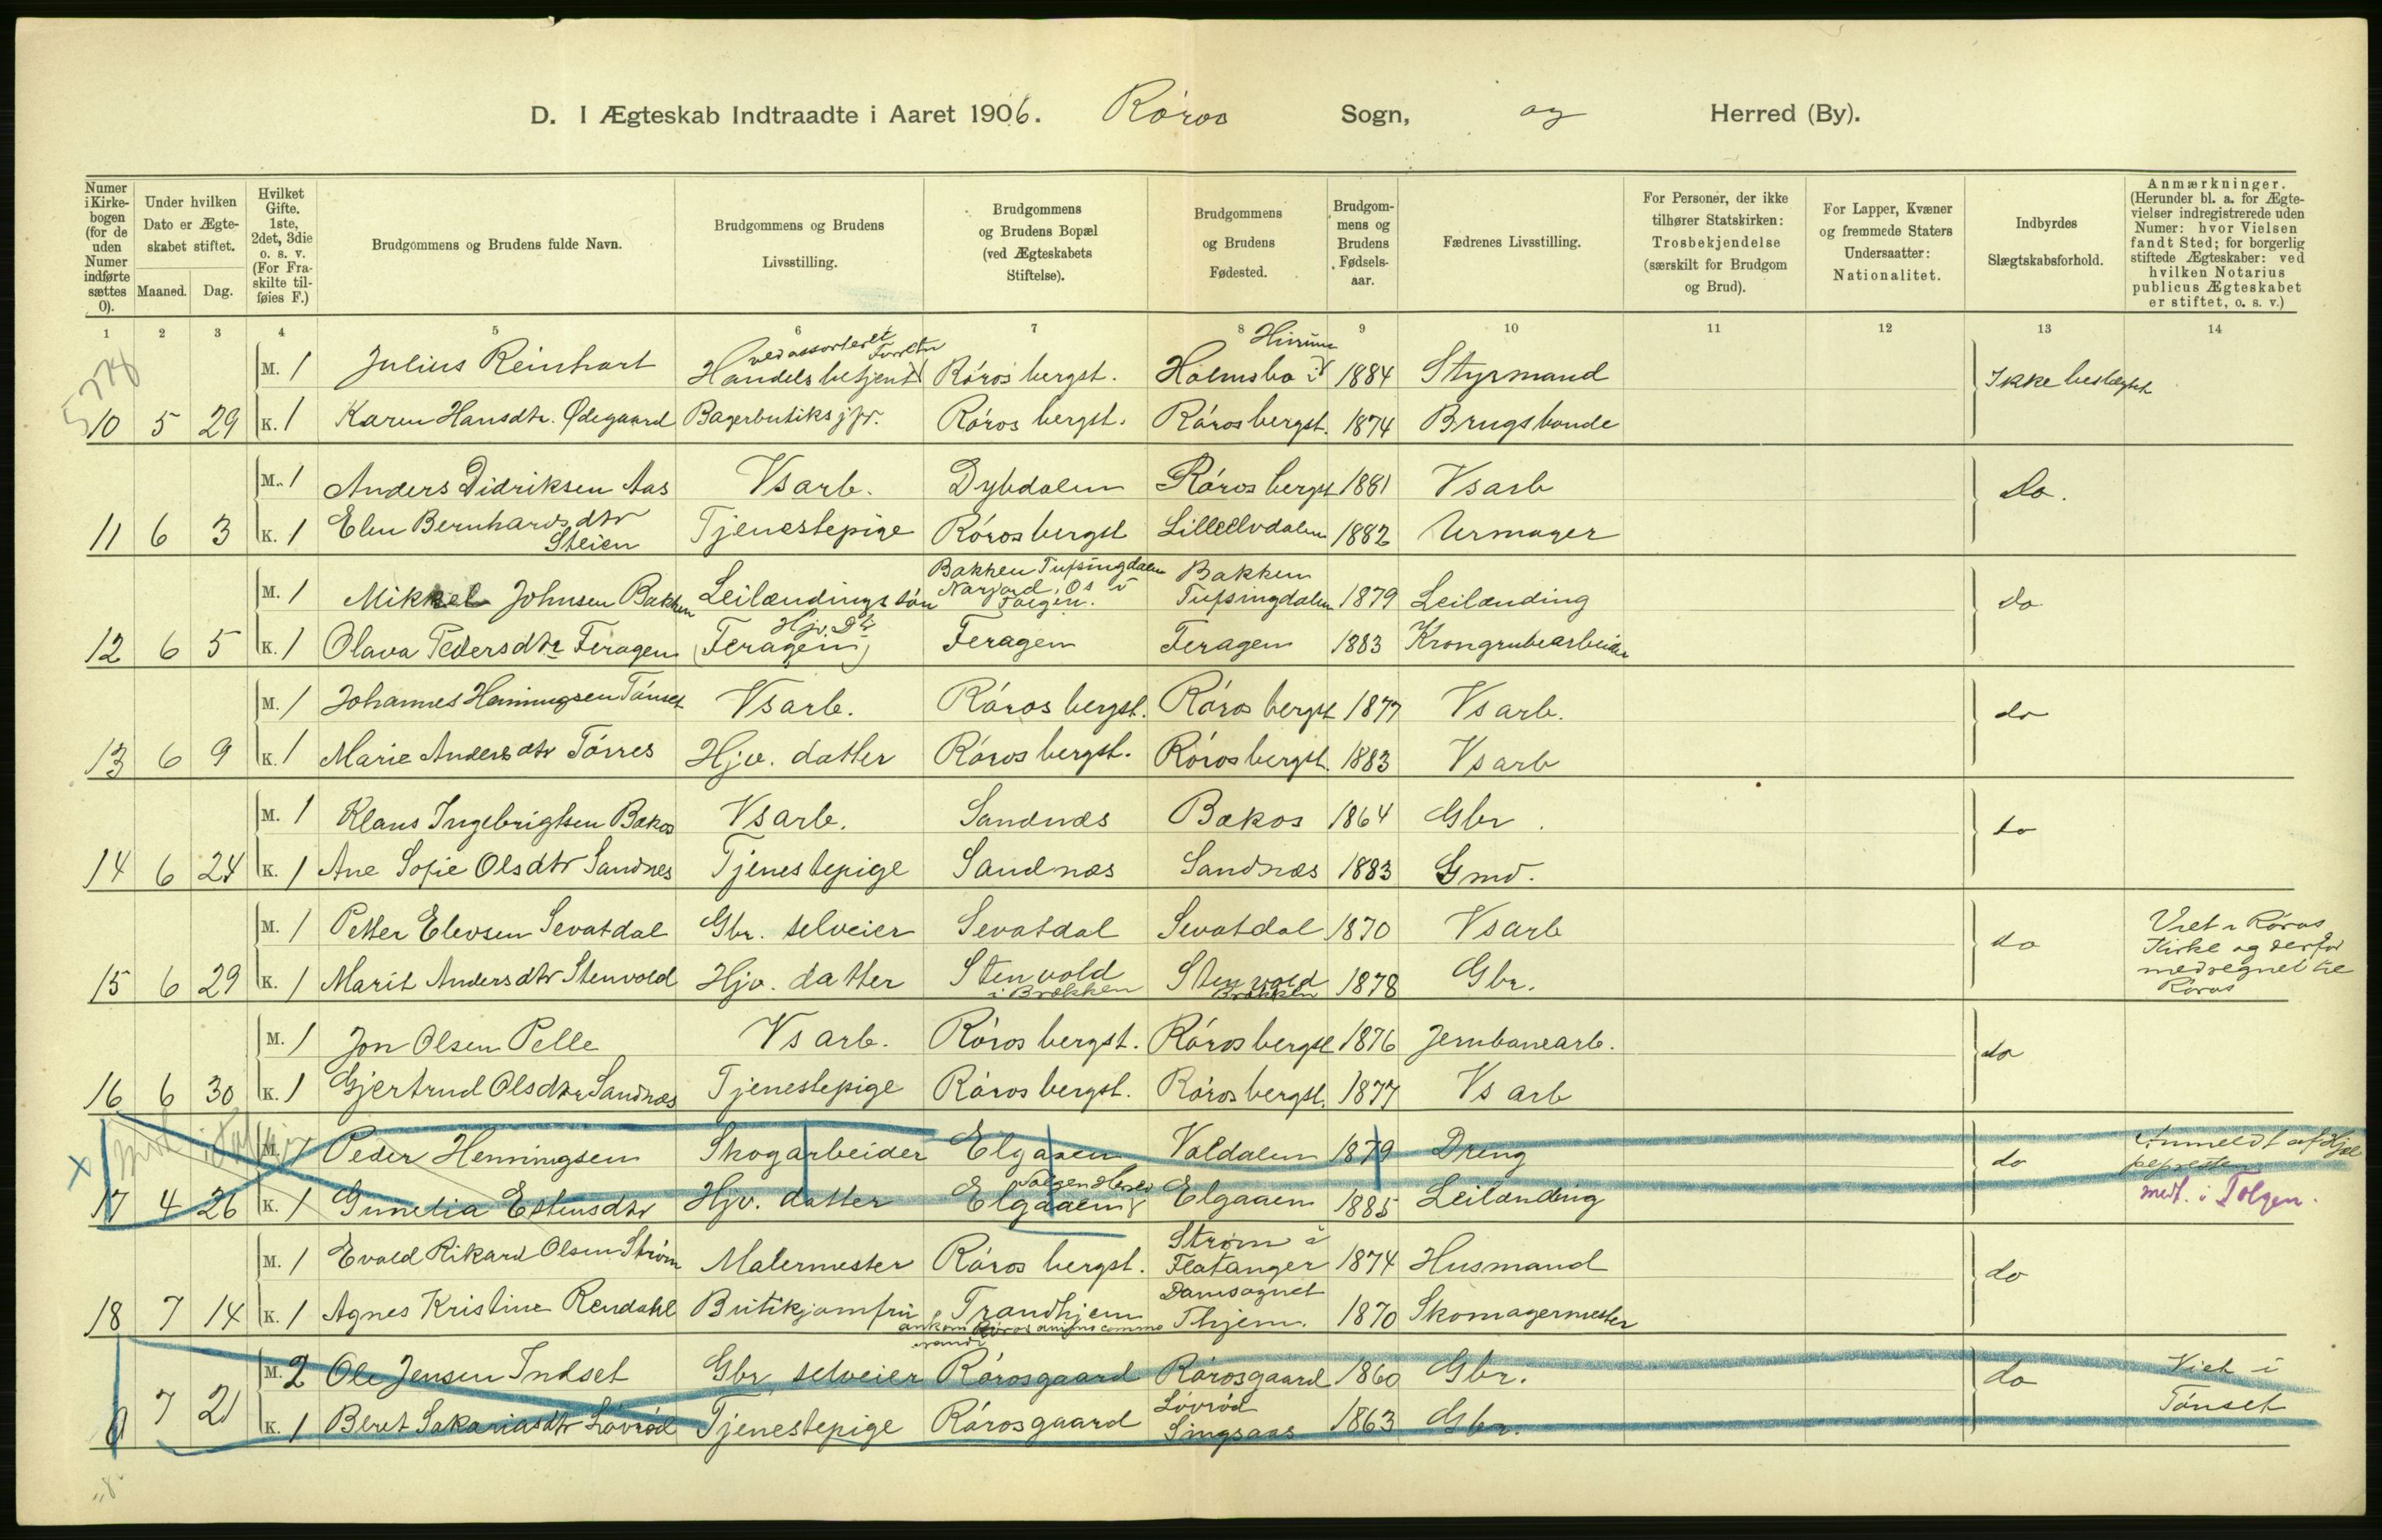 D. I Ægteskab Indtraadte i Aaret 1906. Røros Sogn, og Herred (By).
Numer i Kirke-bogen (for de uden Numer indførte sættes 0).
Under hvilken Dato er Ægte-skabet stiftet.
Maaned. Dag.
Hvilket Gifte. 1ste, 2det, 3die o. s. v. (For Fra-skilte til-føies F.)
Brudgommens og Brudens fulde Navn.
Brudgommens og Brudens Livsstilling.
Brudgommens og Brudens Bopæl (ved Ægteskabets Stiftelse).
Brudgommens og Brudens Fødested.
Brudgom-mens og Brudens Fødsels-aar.
Fædrenes Livsstilling.
For Personer, der ikke tilhører Statskirken: Trosbekjendelse (særskilt for Brudgom og Brud).
For Lapper, Kvæner og fremmede Staters Undersaatter: Nationalitet.
Indbyrdes Slægtskabsforhold.
Anmærkninger. (Herunder bl. a. for Ægte-vielser indregistrerede uden Numer: hvor Vielsen fandt Sted; for borgerlig stiftede Ægteskaber: ved hvilken Notarius publicus Ægteskabet er stiftet, o. s. v.)
1 2 3 4 5 6 7 8 9 10 11 12 13 14
M. 1 Julius Reinhart Handelsbetjent Røros bergst. Holmsbo i Hurum 1884 Styrmand Ikke beslægtet
10 5 29 K. 1 Karen Hansdtr. Ødegaard Bagerbutiksjfr. Røros bergst. Røros bergst. 1874 Brugsbonde
M. 1 Anders Didriksen Aas Vsarb. Dybdalen Røros bergst 1881 Vsarb do.
11 6 3 K. 1 Elen Bernhardsdtr Steien Tjenestepige Røros bergst Lilleelvdalen 1882 Urmager
M. 1 Mikkel Johnsen Bakken Leilændingssøn Bakken Tufsingdalen Narjord, Os i Tolgen. Bakken Tufsingdalen 1879 Leilænding do
12 6 5 K. 1 Olava Pedersdtr Feragen Hjv. Dtr (Feragen) Feragen Feragen 1883 Krongrubearbeider
M. 1 Johannes Henningsen Tønset Vsarb. Røros bergst. Røros bergst 1877 Vsarb. do
13 6 9 K. 1 Marie Andersdtr Tørres Hjv. datter Røros bergst. Røros bergst. 1883 Vsarb
M. 1 Klaus Ingebrigtsen Bakos Vsarb. Sandnæs Bakos 1864 Gbr. do
14 6 24 K. 1 Ane Sofie Olsdtr Sandnes Tjenestepige Sandnæs Sandnæs 1883 Gmd.
M. 1 Petter Elevsen Sevatdal Gbr. selveier Sevatdal Sevatdal 1870 Vsarb do Viet i Røros
Kirke og derfor
medregnet til
Røros
15 6 29 K. 1 Marit Andersdtr Stenvold Hjv. datter Stenvold i Brekken Stenvold Brekken 1878 Gbr.
M. 1 Jon Olsen Pelle Vsarb. Røros bergst. Røros bergst 1876 Jernbanearb. do
16 6 30 K. 1 Gjertrud Olsdtr Sandnæs Tjenestepige Røros bergst. Røros bergst. 1877 Vsarb
M. 1 Peder Henningsen Skogarbeider Elgaaen Valdalen 1879 Dreng do Anmeldt af Hjæl
pepresten
x 17 4 26 K. 1 Gunelia Estensdtr Hjv. datter Elgaaen Tolgen Herred Elgaaen 1885 Leilænding medt. i Tolgen.
M. 1 Evald Rikard Olsen Strøm Malermester Røros bergst. Strøm i Flatanger 1874 Husmand do
18 7 14 K. 1 Agnes Kristine Rendahl Butikjomfru Trondhjem Domsognet Thjem. 1870 Skomagermester
M. 2 Ole Jensen Indset Gbr selveier Rørosgaard Rørosgaard 1860 Gbr. do Viet i
Tønset
0 7 21 K. 1 Beret Sakariasdtr Løvrød Tjenestepige Rørosgaard Løvrød Singsaas 1863 Gbr.